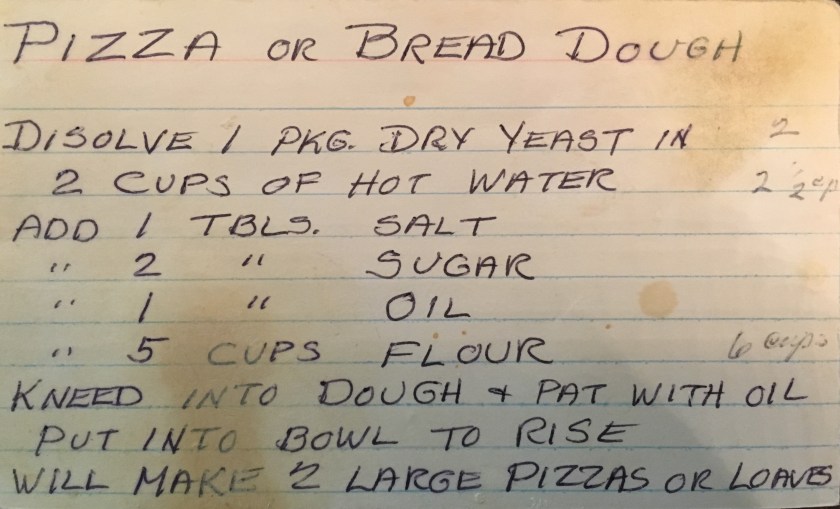 PIZZA OR BREAD DOUGH
DISOLVE 1 PKG. DRY YEAST IN 2
2 CUPS OF HOT WATER 2 1/2 cp
ADD 1 TBLS. SALT
" 2 " SUGAR
" 1 " OIL
" 5 CUPS FLOUR 6 cups
KNEED INTO DOUGH & PAT WITH OIL
PUT INTO BOWL TO RISE
WILL MAKE 2 LARGE PIZZAS OR LOAVES